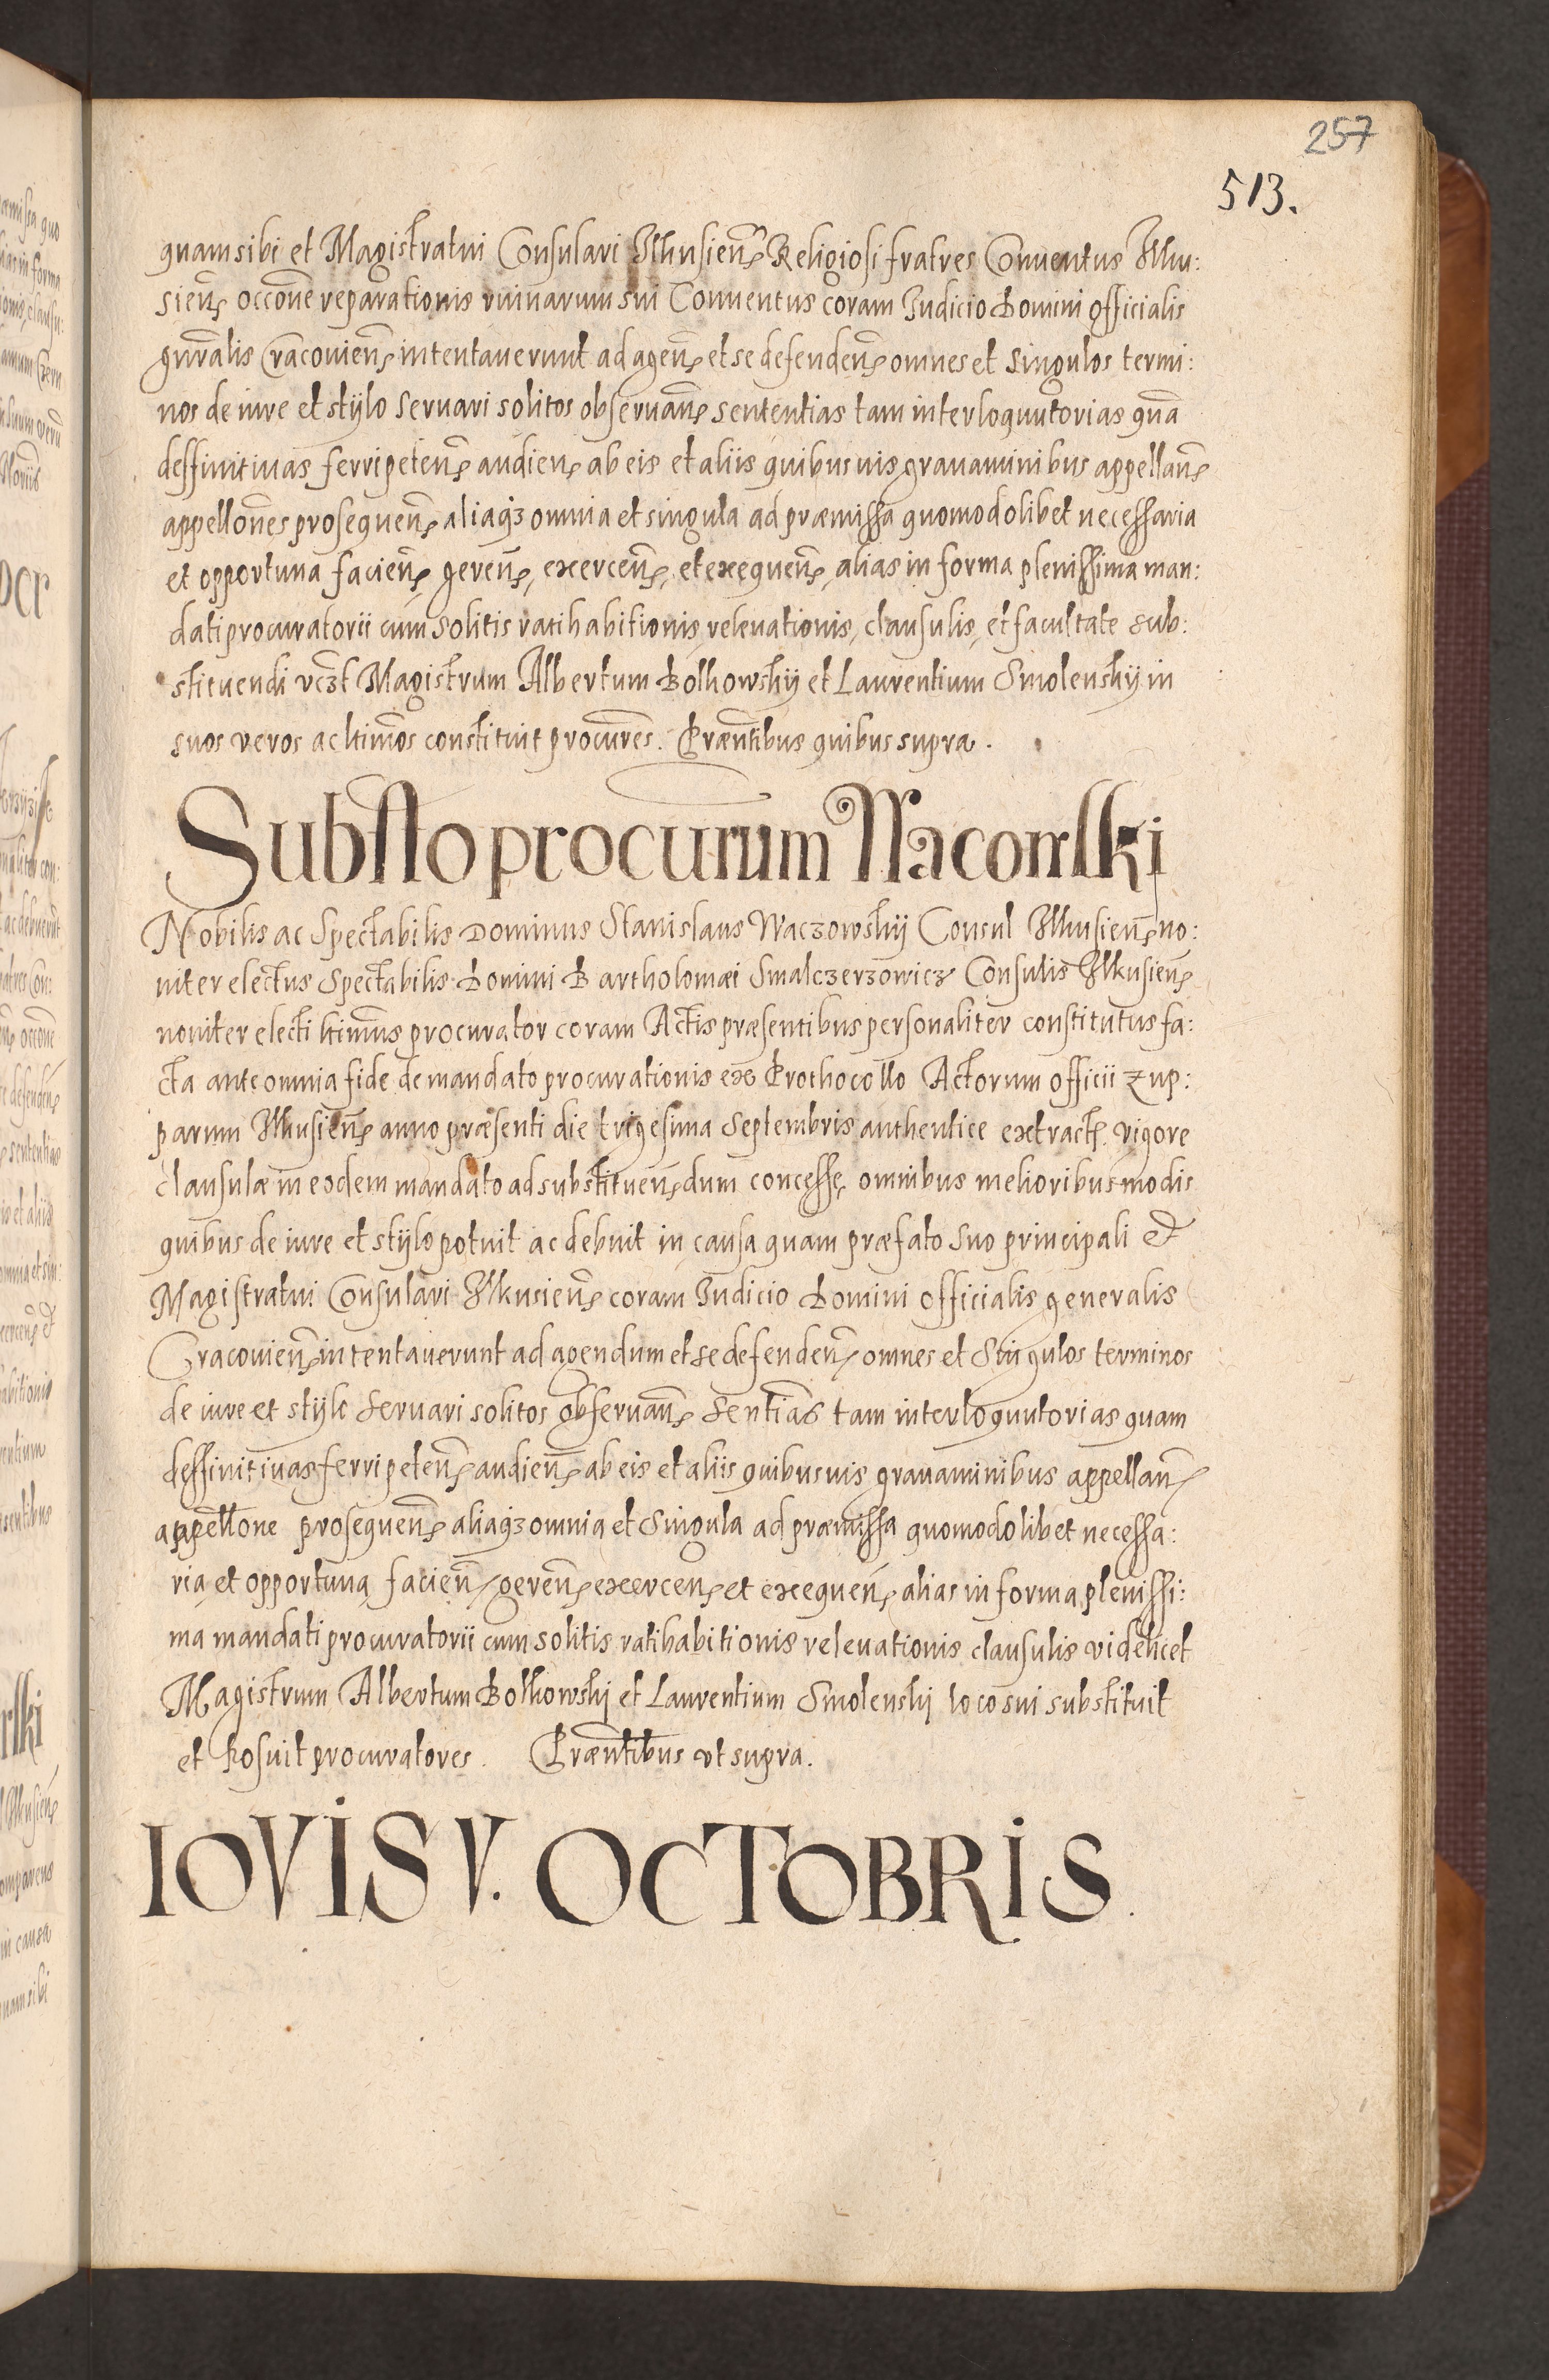 257
513.
quam sibi et Magistratui Consulari Ilkusien̄ Religiosi fratres Conuentus Ilku:
sien̄ occōne reparationis ruinarum sui Conuentus coram Iudicio Domini Officialis
gn̄ralis Cracouien̄ intentauerunt ad agen̄ et se defenden̄ omnes et singulos termi:
nos de iure et stÿlo seruari solitos obseruan̄ sententias tam interloquutorias quā
deffinitiuas ferri peten̄ audien̄ ab eis et aliis quibusuis grauaminibus appellan̄
appellōnes prosequen̄ aliaqꝫ omnia et singula ad præmissa quomodolibet necessaria
et opportuna facien̄, geren̄, exercen̄, et exequen̄, alias in forma plenissima man:
dati procuratorii cum solitis ratihabitionis, releuationis, clausulis, et facultate sub:
stituendi vcꝫt Magistrum Albertum Bolkowskÿ et Laurentium Smolenskÿ in
suos veros ac ltimōs constituit procur̄es. Præn̄tibus quibus supra.
Subsťťo procurum Wacowski
Nobilis ac Spectabilis Dominus Stanislaus Waczowskÿ Consul Ilkusien̄ no:
uiter electus Spectabilis Domini Bartholomæi Smalczerzowicz Consulis Ilkusien̄
nouiter electi ltimūs procurator coram Actis præsentibus personaliter constitutus fa:
cta ante omnia fide de mandato procurationis ex Prothocollo Actorum officii Zup:
parum Ilkusien̄ anno præsenti die trigesima Septembris authentice extract̄ vigore
clausulæ in eodem mandato ad substituen̄dum concessę omnibus melioribus modis
quibus de iure et stÿlo potuit ac debuit in causa quam præfato suo principali et
Magistratui Consulari Ilkusien̄ coram Iudicio Domini Officialis generalis
Cracouien̄ intentauerunt ad agendum et se defenden̄ omnes et Singulos terminos
de iure et stÿlo seruari solitos obseruan̄ sentiās tam interloquutorias quam
deffinitiuas ferri peten̄ audien̄ ab eis et aliis quibusuis grauaminibus appellan̄
appellōne prosequen̄ aliaqꝫ omnia et Singula ad præmissa quomodolibet necessa:
ria et opportuna facien̄ geren̄ exercen̄ et exequen̄ alias in forma plenissi:
ma mandati procuratorii cum solitis ratihabitionis releuationis clausulis videlicet
Magistrum Albertum Bolkowskj et Laurentium Smolenskj loco sui substituit
et posuit procuratores. Præn̄tibus vt supra.
IOVIS V. OCTOBRIS.